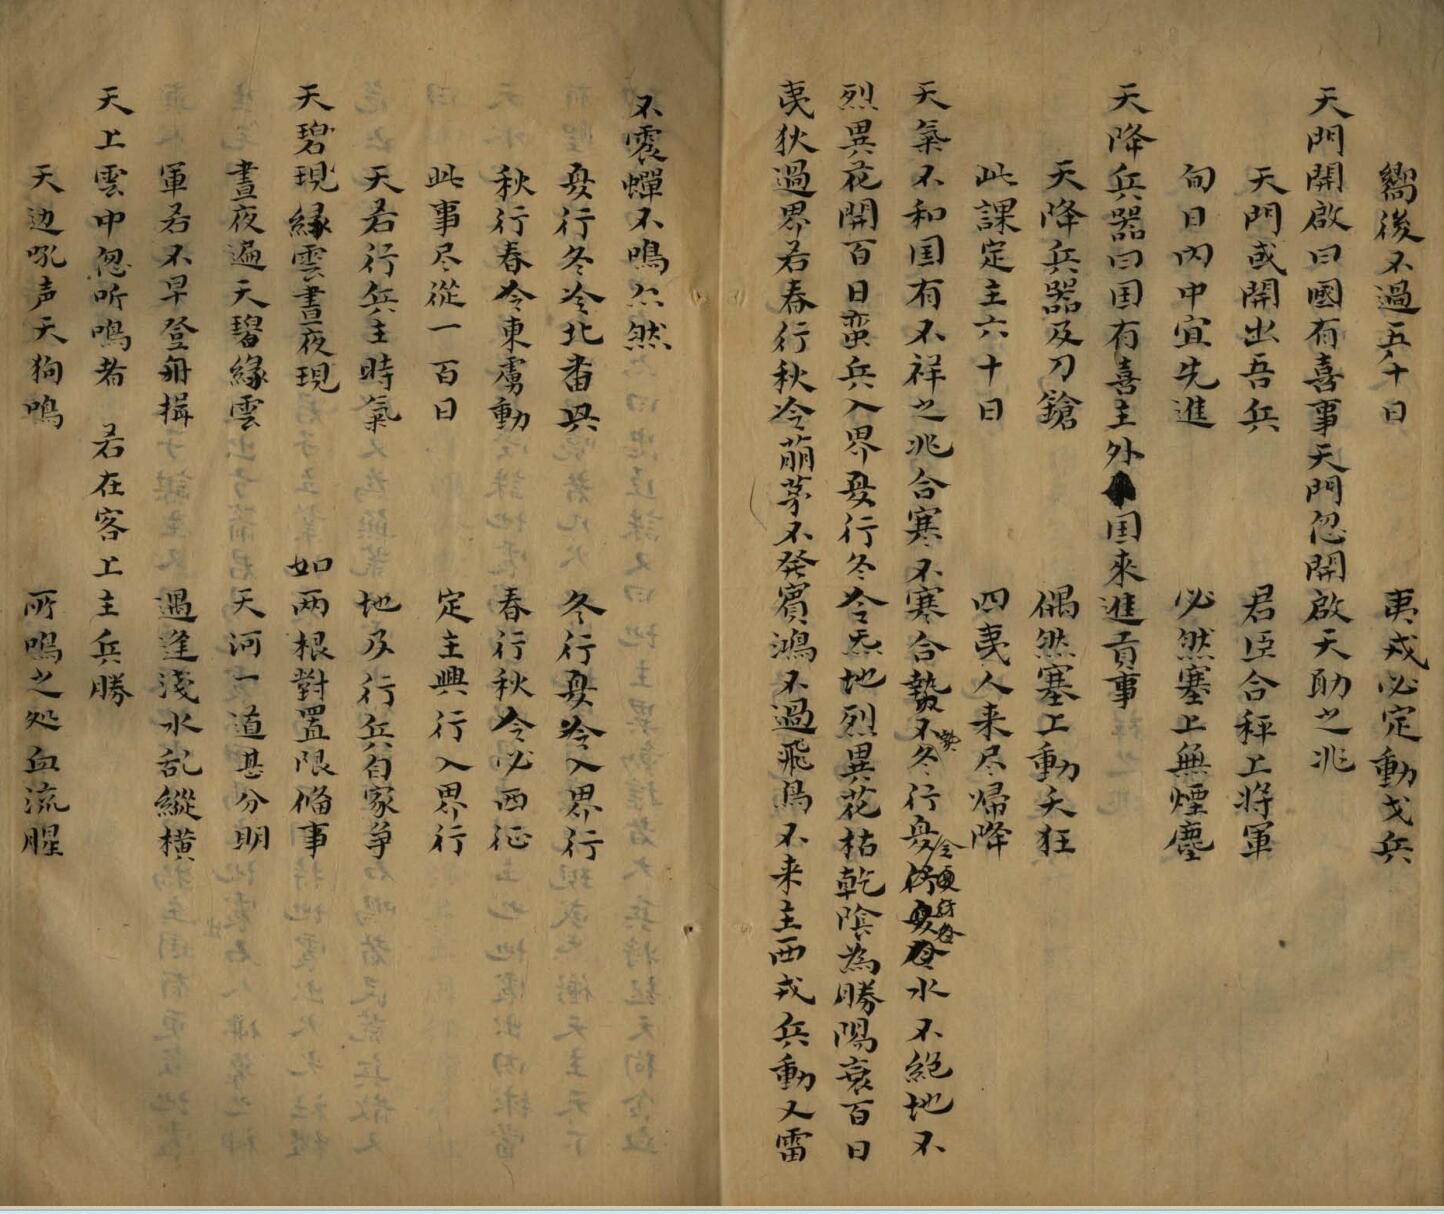 嚮後不過五十日　夷戎必定動戈兵
天門開啟曰國有喜事天門忽開啟天助之兆
天門或開出吾兵　君臣合秤上將軍
旬日內中宜先進　必然塞上無煙塵
天降兵器曰国有喜主外国來進貢事
天降兵器及刀鎗　偶然塞上動夭狂
此課定主六十日　四夷人来尽帰降
天氣不和国有不祥之兆合寒不寒合熱不冬行夏冷水不絕地不
烈異花開百日蛮兵入界夏行冬令炁地烈異花枯乾陰為勝陽衰百日
夷狄過界若春行秋令萠芽不発賓鴻不過飛鳥不来主西戎兵動又雷
不震蟬不鳴亦然
夏行冬冷北番兵　冬行夏冷入界行
秋行春令東虜動　春行秋令必西征
此事尽從一百日　定主興行入界行
天若行兵主時氣　地及行兵自家爭
天碧現緣雲晝夜現　如兩根對置限偹事
晝夜遍天碧緣雲　天河一道甚分明
軍若不早登舟揖　過逢淺水乱縱橫
天上雲中忽听鳴者　若在客上主兵勝
天边吼声天狗鳴　所鳴之処血流腥